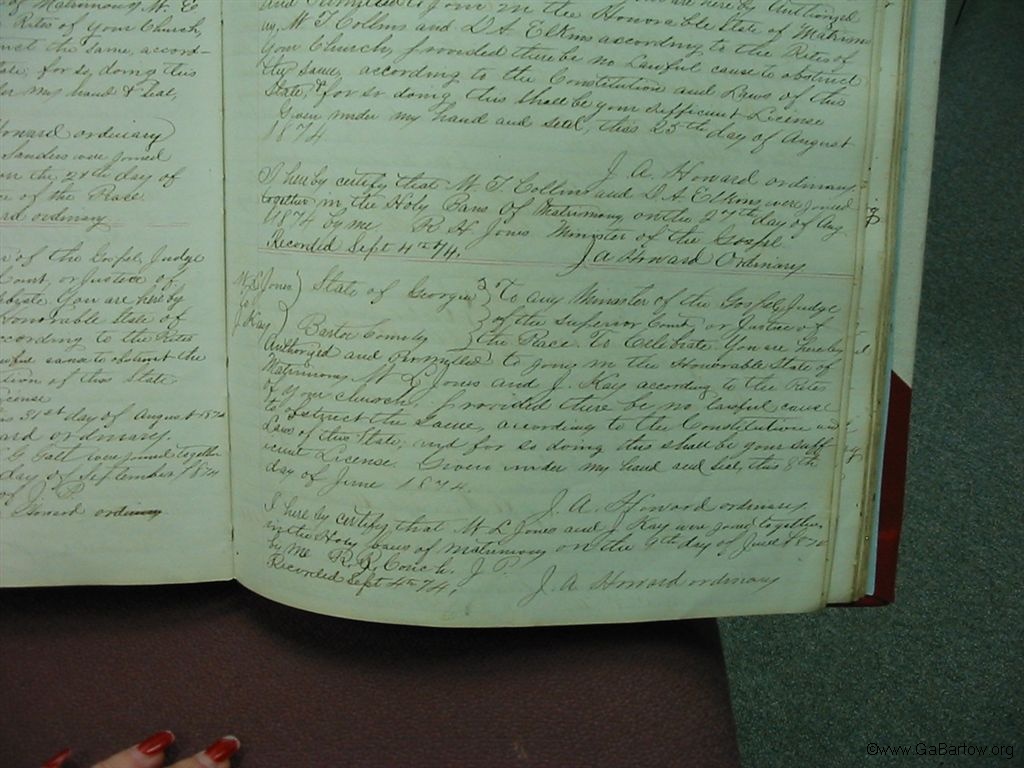 of Matrimony W. E
Rites of your Church,
the same, accord-
State, for so doing this
my hand & seal,
Howard ordinary
Sanders were joined
on the 28th day of
of the Peace
ordinary
of the Gospel, Judge
Court, or Justice of
You are hereby
Honorable State of
according to the Rites
cause to obstruct the
of this State
License
31st day of August 1874
ordinary
Galt were joined together
day of September 1874
of J. P.
Howard ordinary
and Permitted to join in the Honorable State of Matrimo
ny, W. T Collins and D A Elkins according to the Rites of
your Church, provided there be no Lawful cause to obstruct
the same, according to the Constitution and Laws of this
State, & for so doing this shall be your sufficient License
Given under my hand and seal, this 25th day of August
1874
J. A. Howard ordinary
I hereby certify that W. T Collins and D. A Elkins were joined
together in the Holy Bans Of Matrimony on the 27th day of Aug
1874 by me R. H. Jones Minister of the Gospel
Recorded Sept 4th 74. J A Howard Ordinary
W. L. Jones State of Georgia To any Minister of the Gospel, Judge
to of the Superior Court, or Justice of
J. Kay Bartow County the Peace to Celebrate. You are hereby
Authorized and Permitted to join in the Honorable State of
Matrimony W. L Jones and J. Kay according to the Rites
of your church, provided there be no lawful cause
to obstruct the same, according to the Constitution and
Laws of this State, and for so doing this shall be your suff
icient License. Given under my hand and seal, this 8th
day of June 1874.
J. A. Howard ordinary
I here by certify that W. L Jones and J Kay were joined together
in the Holy bans of matrimony on the 9th day of June 1874
by me R. R. Couch J P
Recorded Sept 4th 74. J. A. Howard ordinary
©www.GaBartow.org